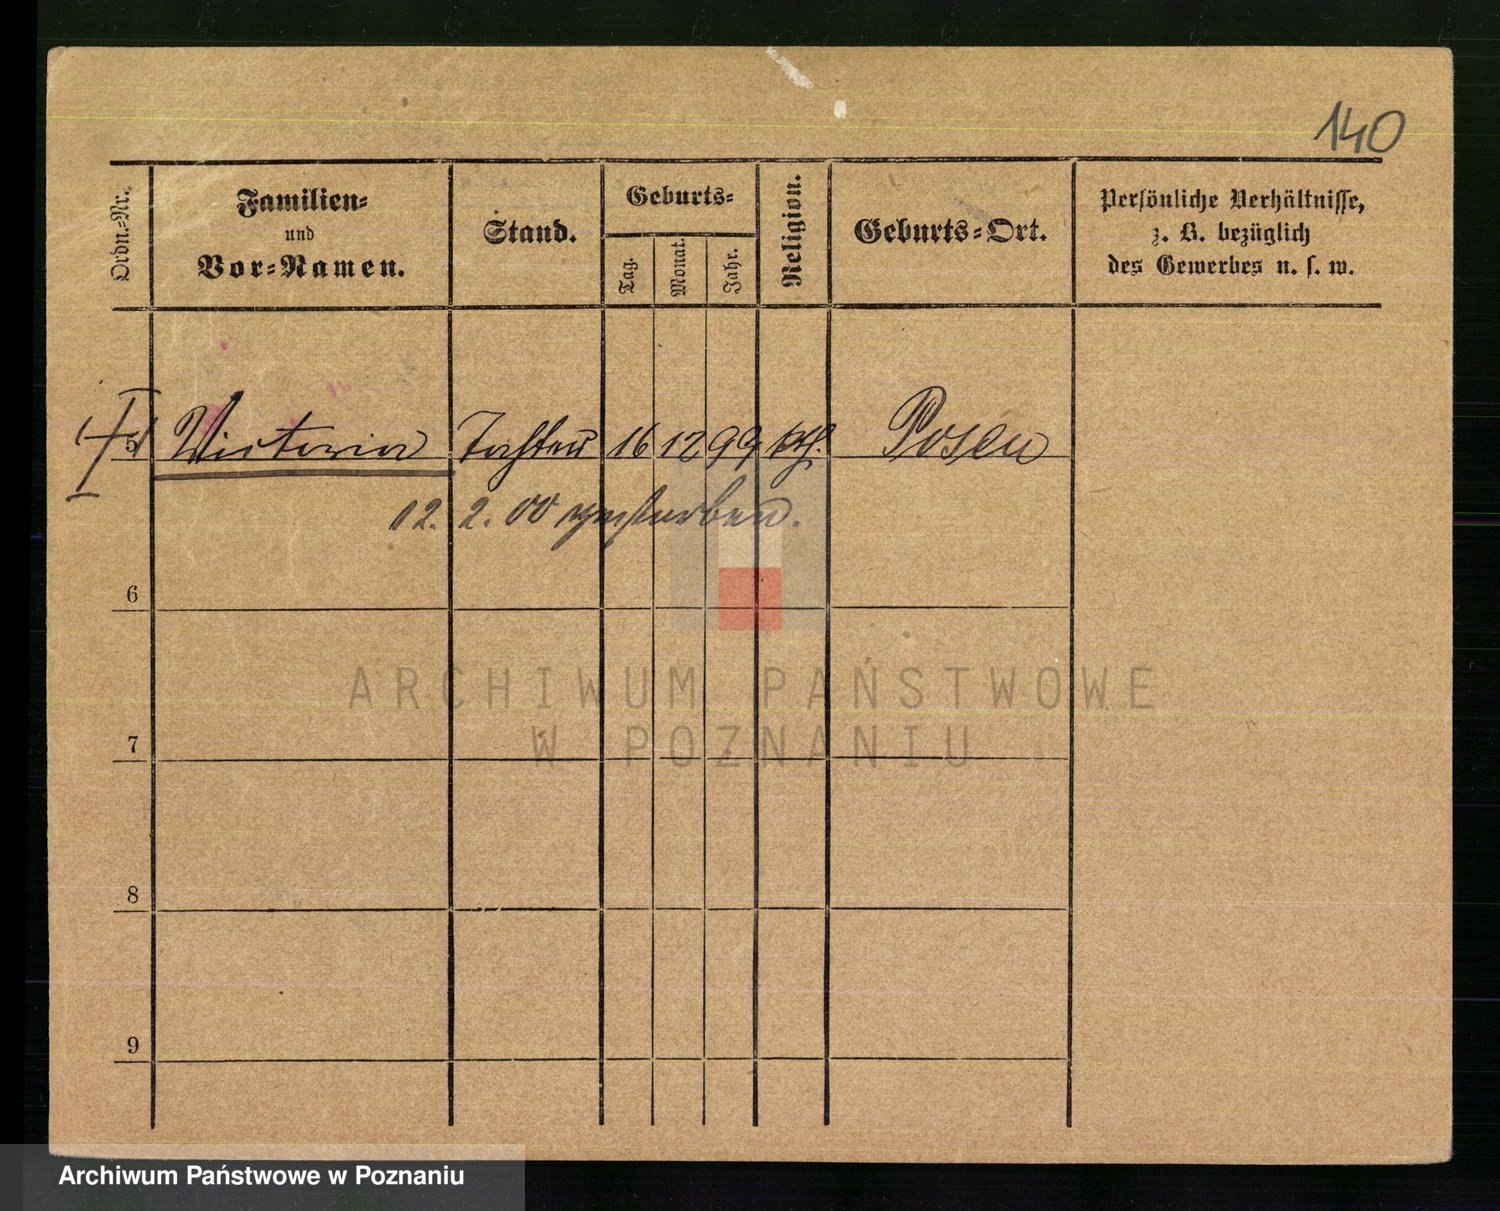 140
Ordn.-Nr.
Familien-
und
Vor-Namen.
Stand.
Geburts-
Tag.
Monat.
Jahr.
Religion.
Geburts-Ort.
Persönliche Verhältnisse,
z. B. bezüglich
des Gewerbes u. s. w.
5 Victoria Tochter 16 12 99 kth. Posen
12. 2. 00 gestorben.
6
7
8
9
ARCHIWUM PAŃSTWOWE
W POZNANIU
Archiwum Państwowe w Poznaniu